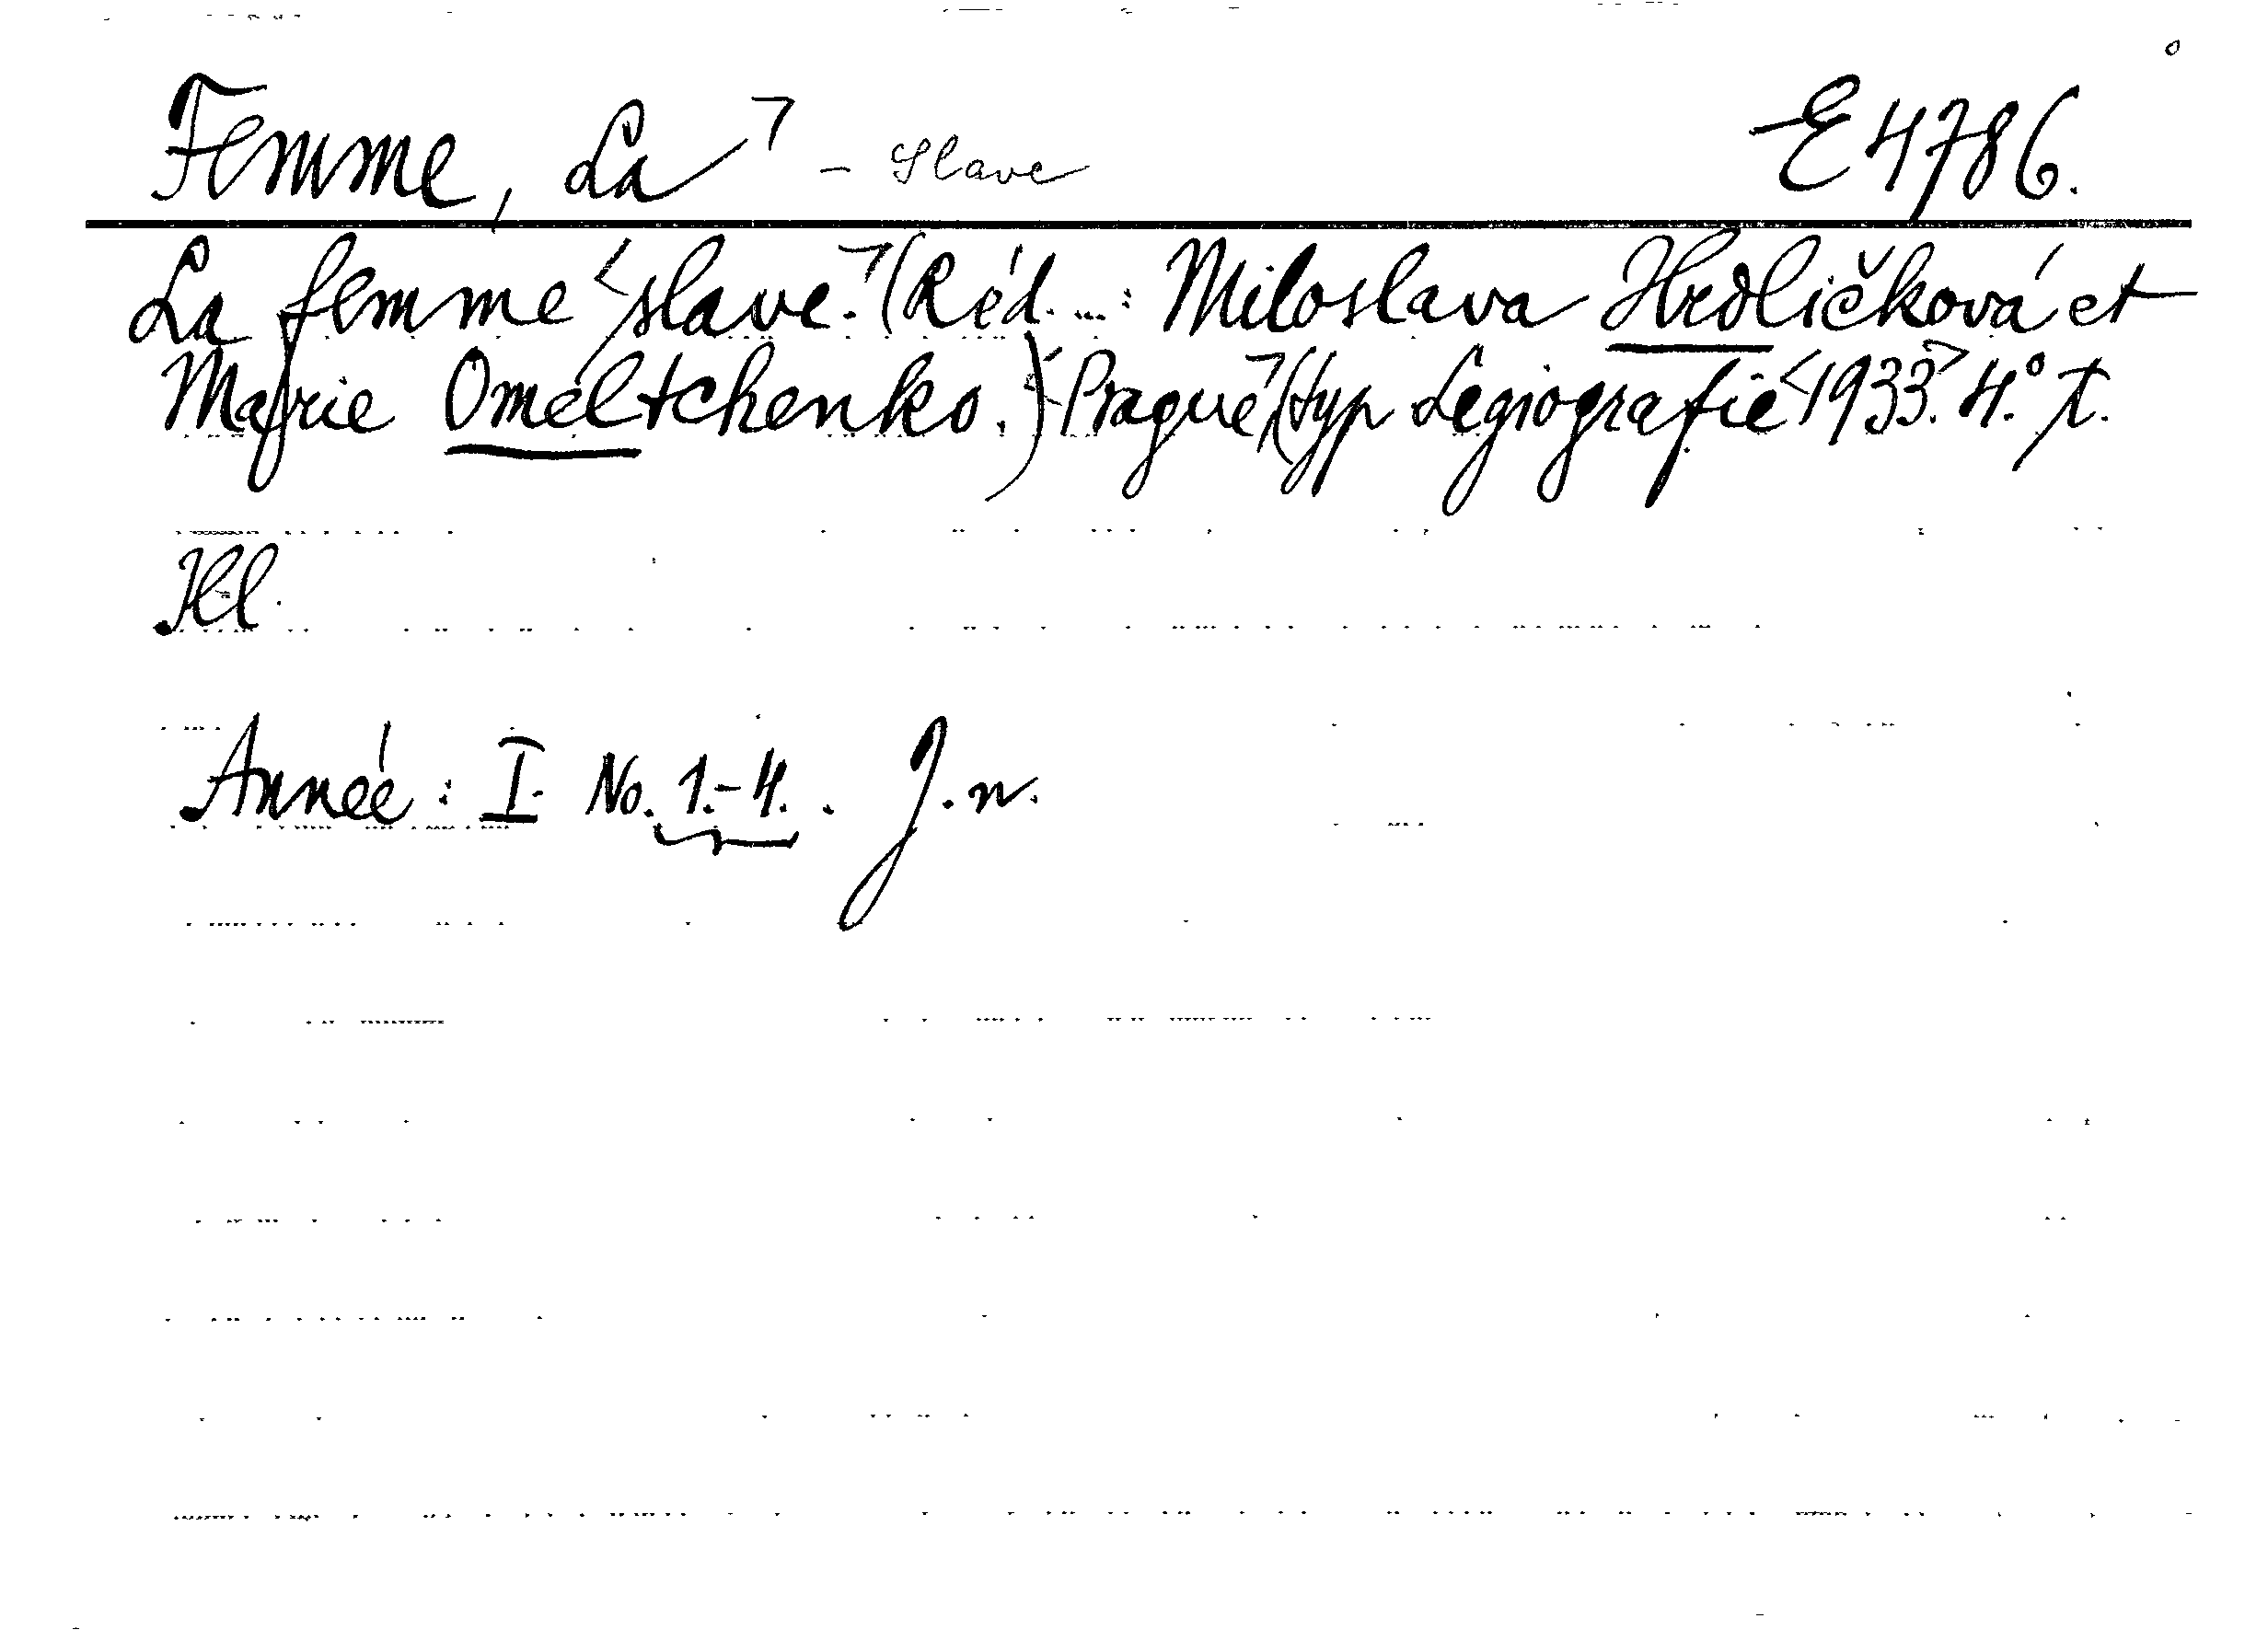 Femme, La - Slave E 4786.
La femme slave. (Réd. ...: Miloslava Hrdličková et
Marie Omeltchenko.) Prague, (typ Legiografie 1933. 4.° t.
Kl.
Année: I. No. 1.-4. . J. n.